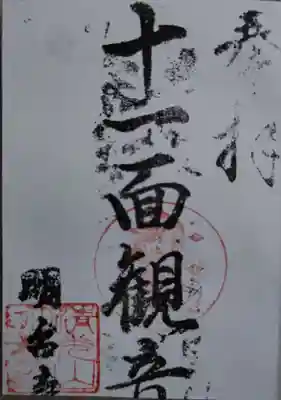 奉拝
十一面観音
明台寺